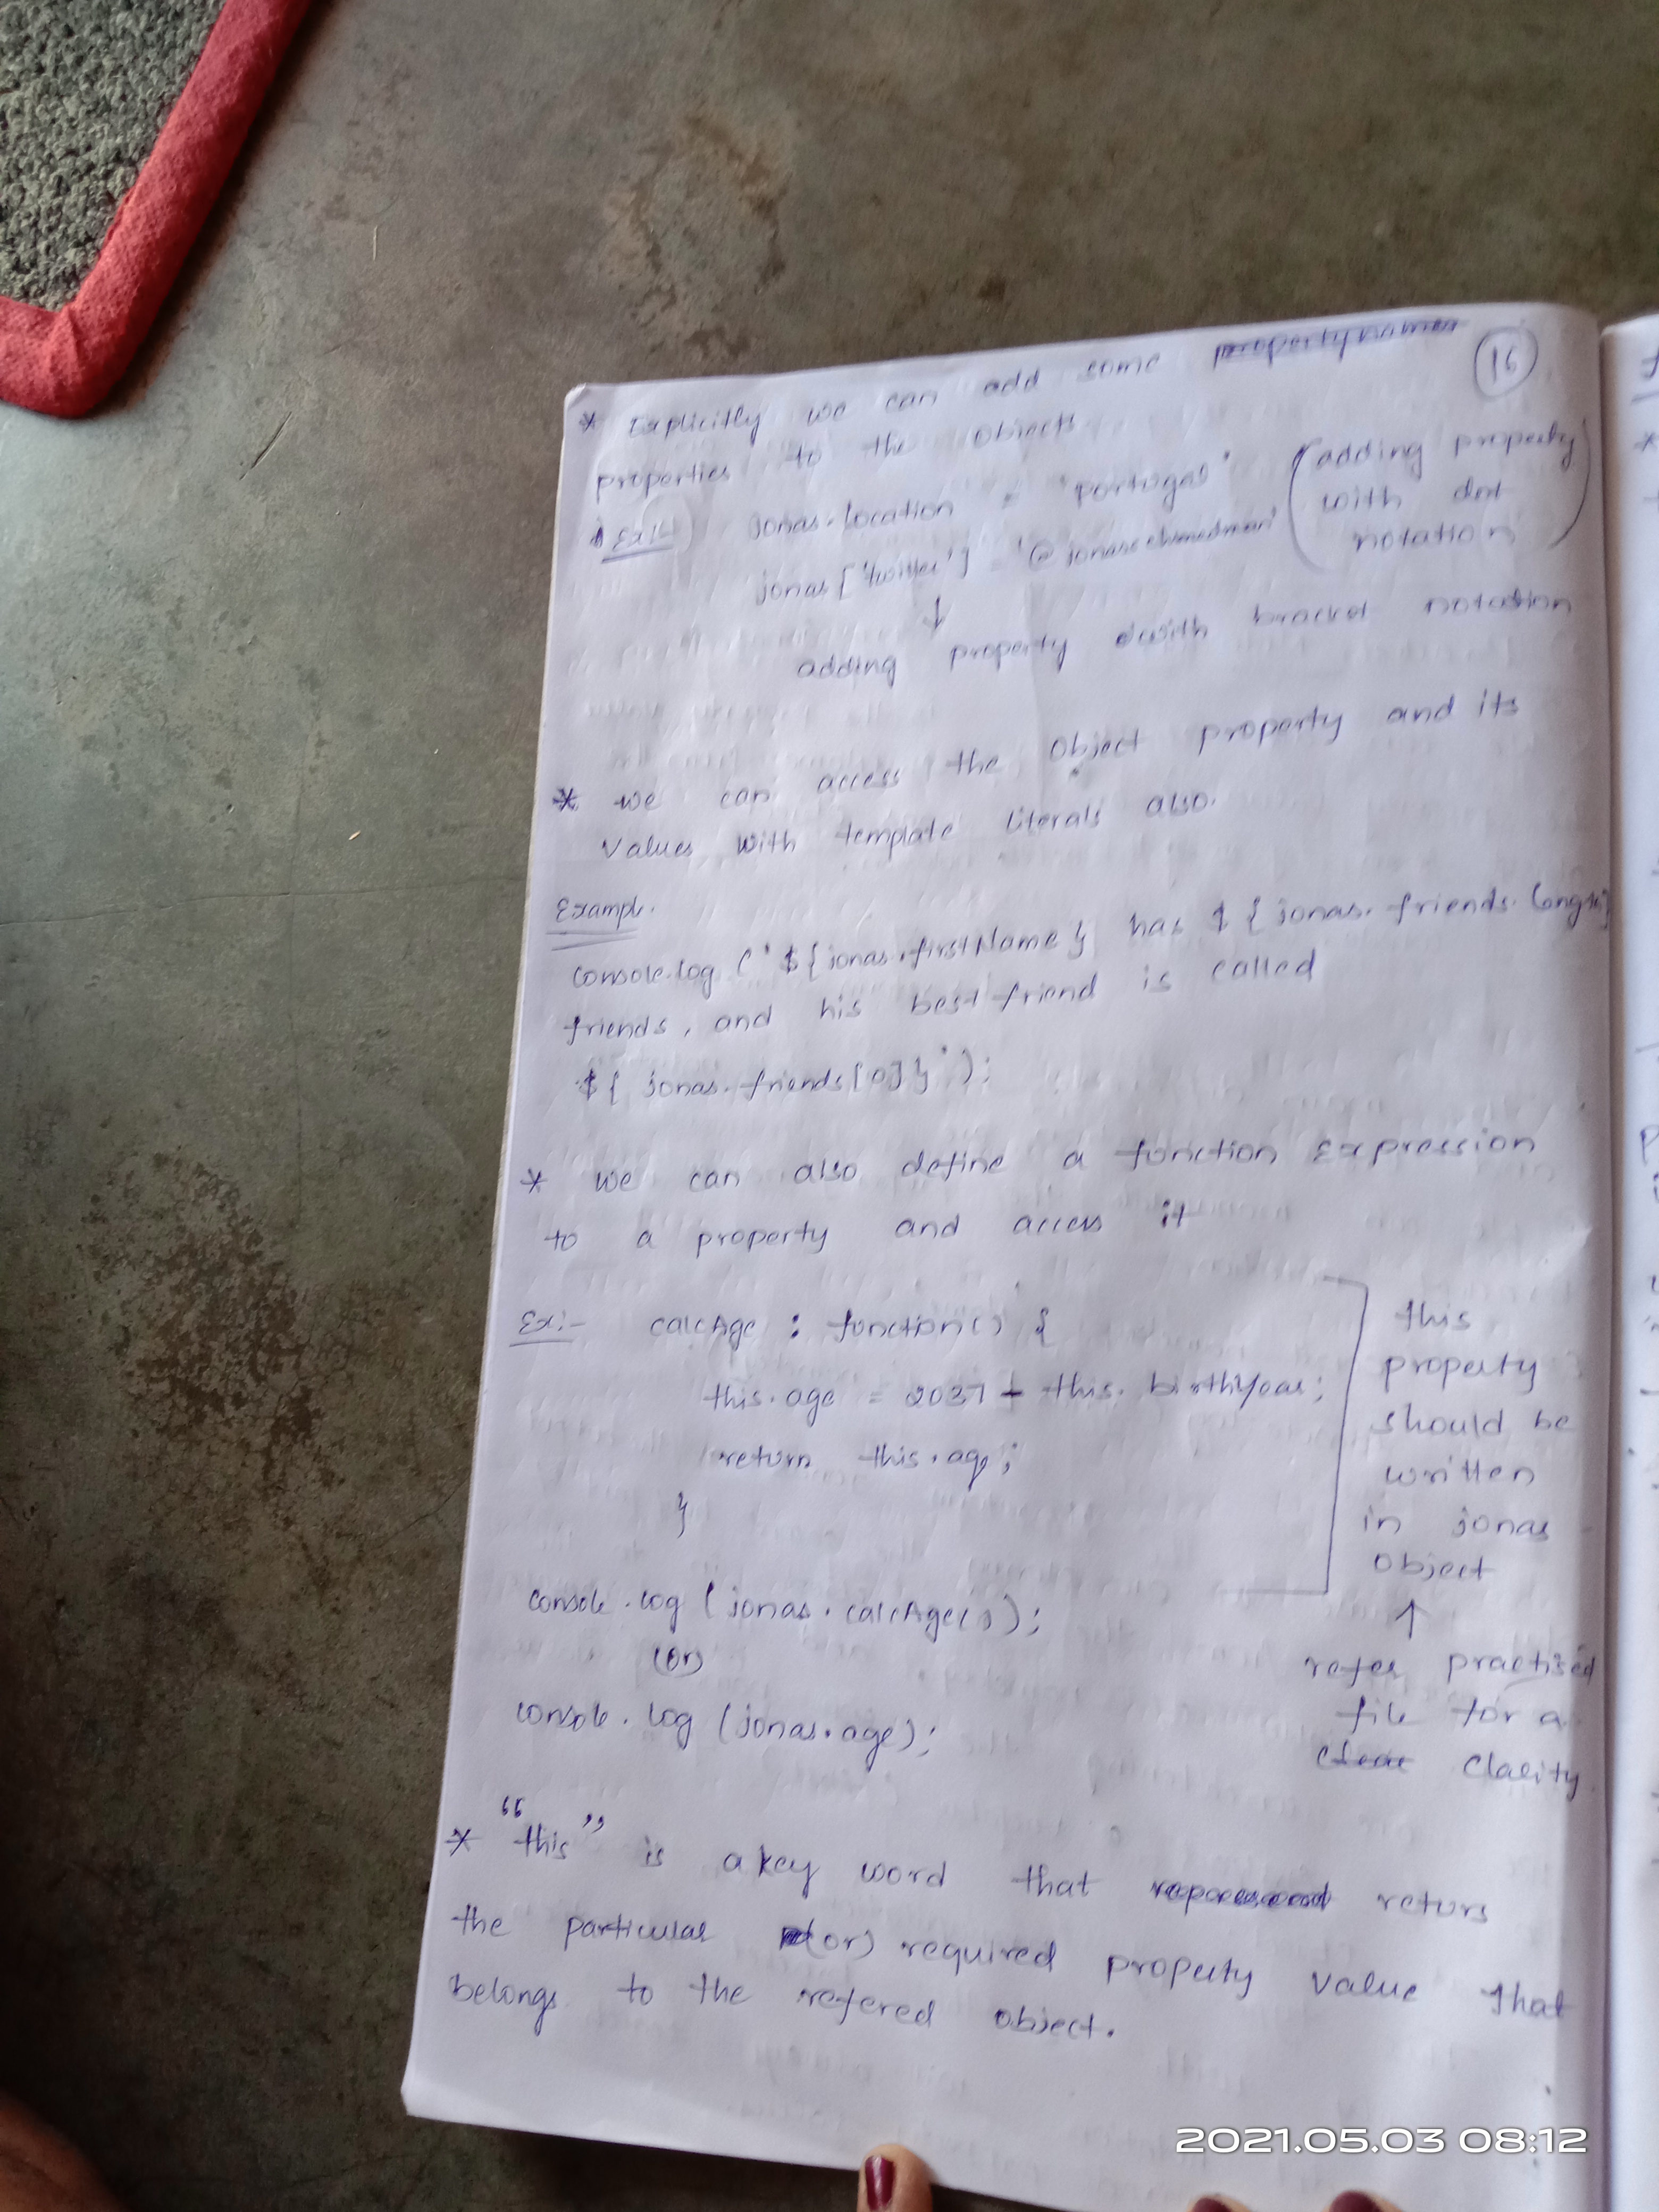 16
* Explicitly we can add some propertynames
properties to the objects
Ex:- jonas.location = 'portugal' (adding property
with dot
notation)
jonas['twitter'] = '@jonasschmedman'
↓
adding property with bracket notation
* we can access the object property and its
values with template literals also.
Example.
console.log ('${jonas.firstName} has ${jonas.friends.length}
friends, and his best friend is called
${jonas.friends[0]}');
* we can also define a function Expression
to a property and access it
Ex:- calcAge : function() {
this.age = 2037 - this.birthYear;
return this.age;
}
this
property
should be
written
in jonas
object
↑
refer practised
file for a
clear clarity
console.log (jonas.calcAge());
(or)
console.log (jonas.age);
* "this" is a key word that represent returs
the particular (or) required property value that
belongs to the refered object.
2021.05.03 08:12